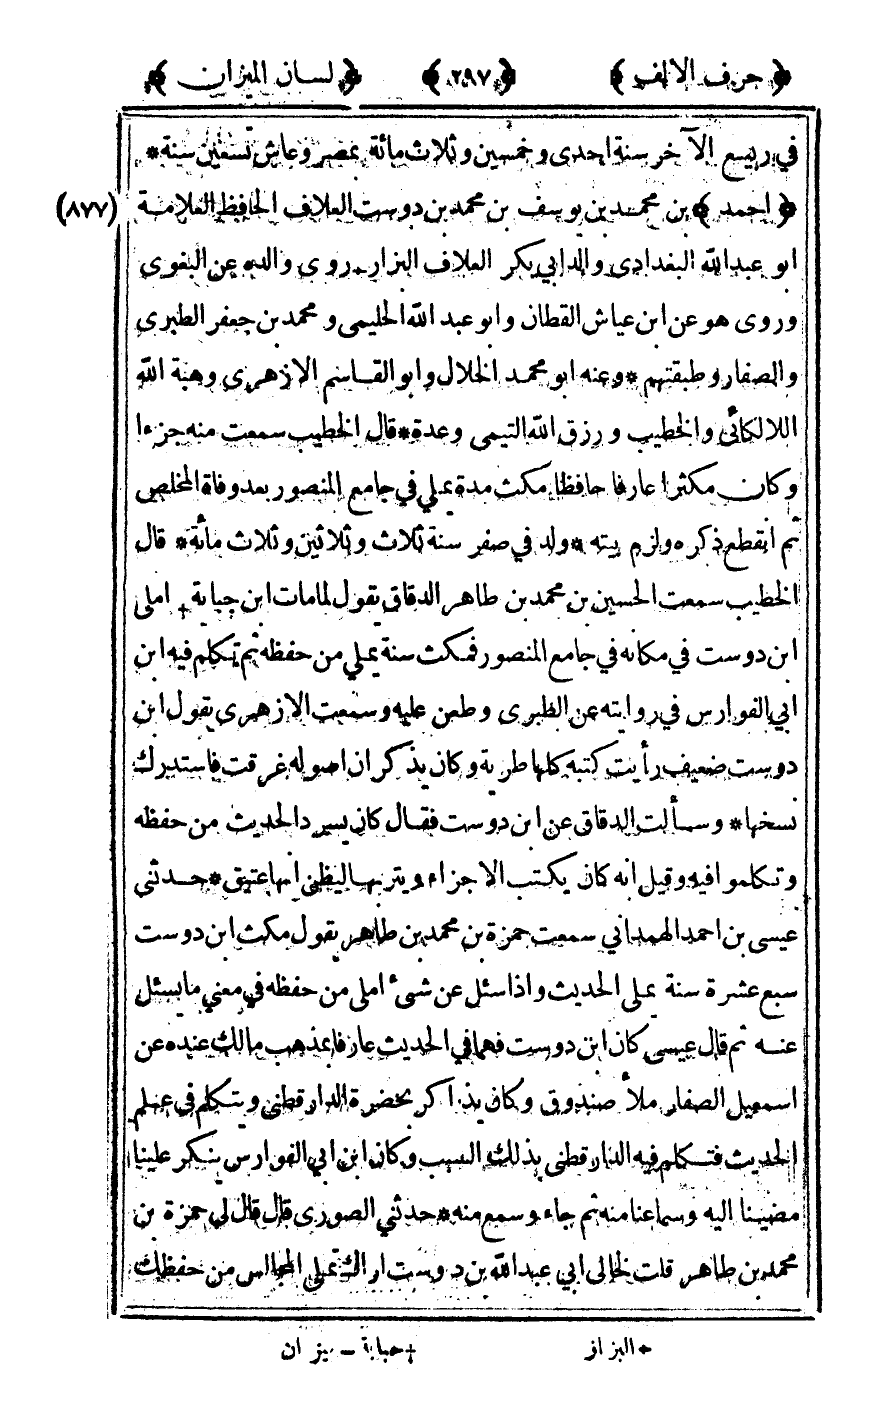 ﴿ حرف الالف ﴾ ﴿ ٢٩٧ ﴾ ﴿ لسان الميزان ﴾
في ربيع الآخر سنة احدى وخمسين وثلاث مائة بمصر وعاش تسعين سنة *
﴿ احمد ﴾ بن محمد بن يوسف بن محمد بن دوست العلاف الحافظ العلامة (٨٧٧)
ابو عبدالله البغدادى والد ابي بكر العلاف البزار٭ روى والده عن البغوى
وروى هو عن ابن عياش القطان وابو عبد الله الحليمى ومحمد بن جعفر الطبرى
والصفار وطبقتهم * وعنه ابو محمد الخلال وابو القاسم الازهرى وهبة الله
اللالكائى والخطيب ورزق الله التيمى وعدة * قال الخطيب سمعت منه جزءا
وكان مكثرا عارفا حافظا مكث مدة يملي في جامع المنصور بعد وفاة المخلص
ثم انقطع ذكره ولزم بيته * ولد في صفر سنة ثلاث وثلاثين وثلاث مائة * قال
الخطيب سمعت الحسين بن محمد بن طاهر الدقاق يقول لما مات ابن حبابة † املى
ابن دوست في مكانه في جامع المنصور فمكث سنة يملي من حفظه ثم تكلم فيه ابن
ابي الفوارس في روايته عن الطبرى وطعن عليه وسمعت الازهرى يقول ابن
دوست ضعيف رأيت كتبه كلها طرية وكان يذكر ان اصوله غرقت فاستدرك
نسخها * وسألت الدقاق عن ابن دوست فقال كان يسرد الحديث من حفظه
وتكلموا فيه وقيل انه كان يكتب الاجزاء ويتربها ليظن انها عتيق * حدثني
عيسى بن احمد الهمداني سمعت حمزة بن محمد بن طاهر يقول مكث ابن دوست
سبع عشرة سنة يملى الحديث واذا سئل عن شىء املى من حفظه في معنى ما يسئل
عنه ثم قال عيسى كان ابن دوست فهما في الحديث عارفا بمذهب مالك عنده عن
اسمعيل الصفار ملأ صندوق وكان يذاكر بحضرة الدارقطنى ويتكلم في علم
الحديث فتكلم فيه الدارقطنى بذلك السبب وكان ابن ابي الفوارس ينكر علينا
مضينا اليه وسماعنا منه ثم جاء وسمع منه * حدثني الصورى قال قال لي حمزة بن
محمد بن طاهر قلت لخالى ابي عبدالله بن دوست اراك تملى المجالس من حفظك
٭ البزاز † حبابة – ميزان